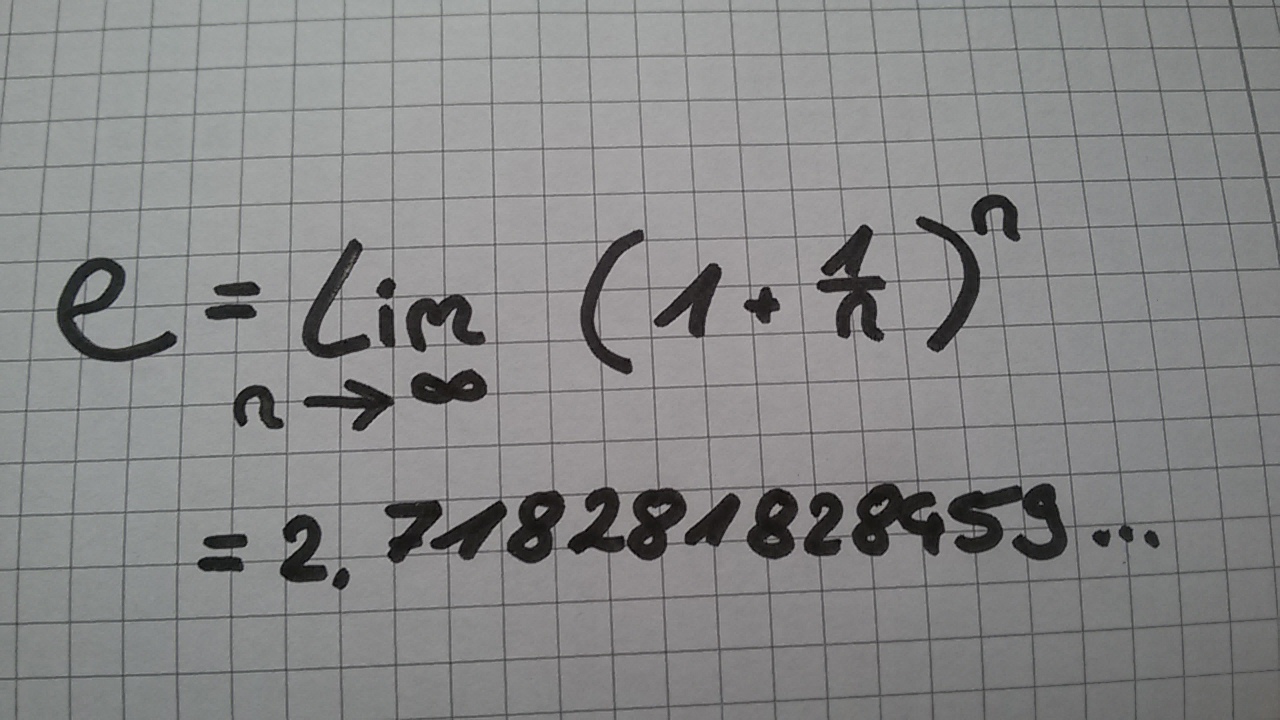 e = Lim (1 + 1/n)^n
n → ∞
= 2.718281828459...